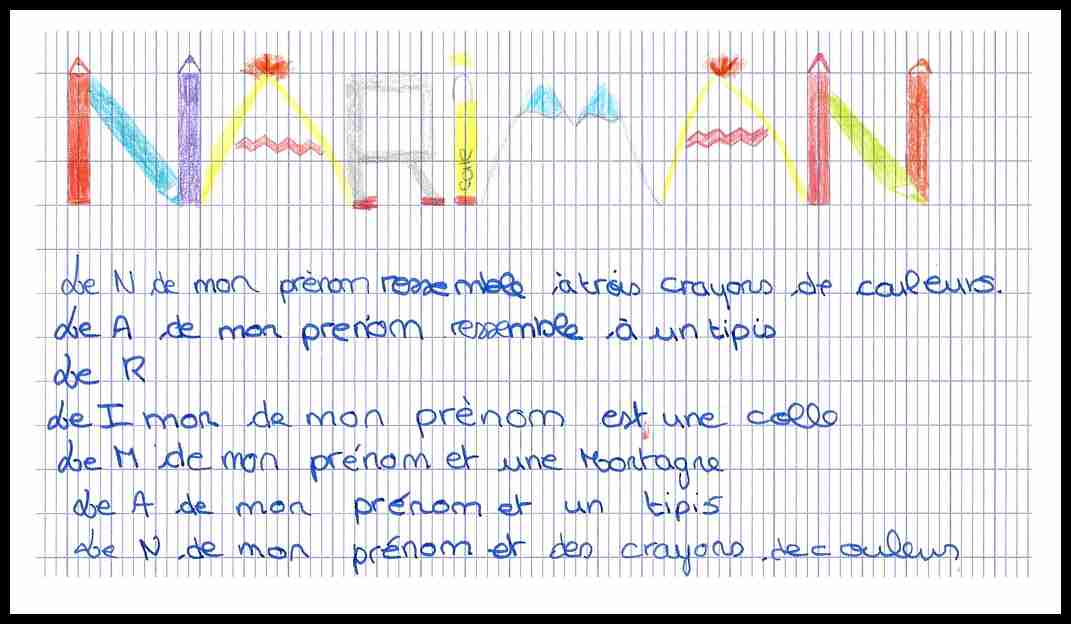 NARiMAN
cole
Le N de mon prènom ressemble à trois crayons de couleurs.
Le A de mon prenom ressemble à un tipis
Le R
Le I mon de mon prènom est une colle
Le M de mon prénom et une Montagne
Le A de mon prénom et un tipis
Le N de mon prénom et des crayons de couleur